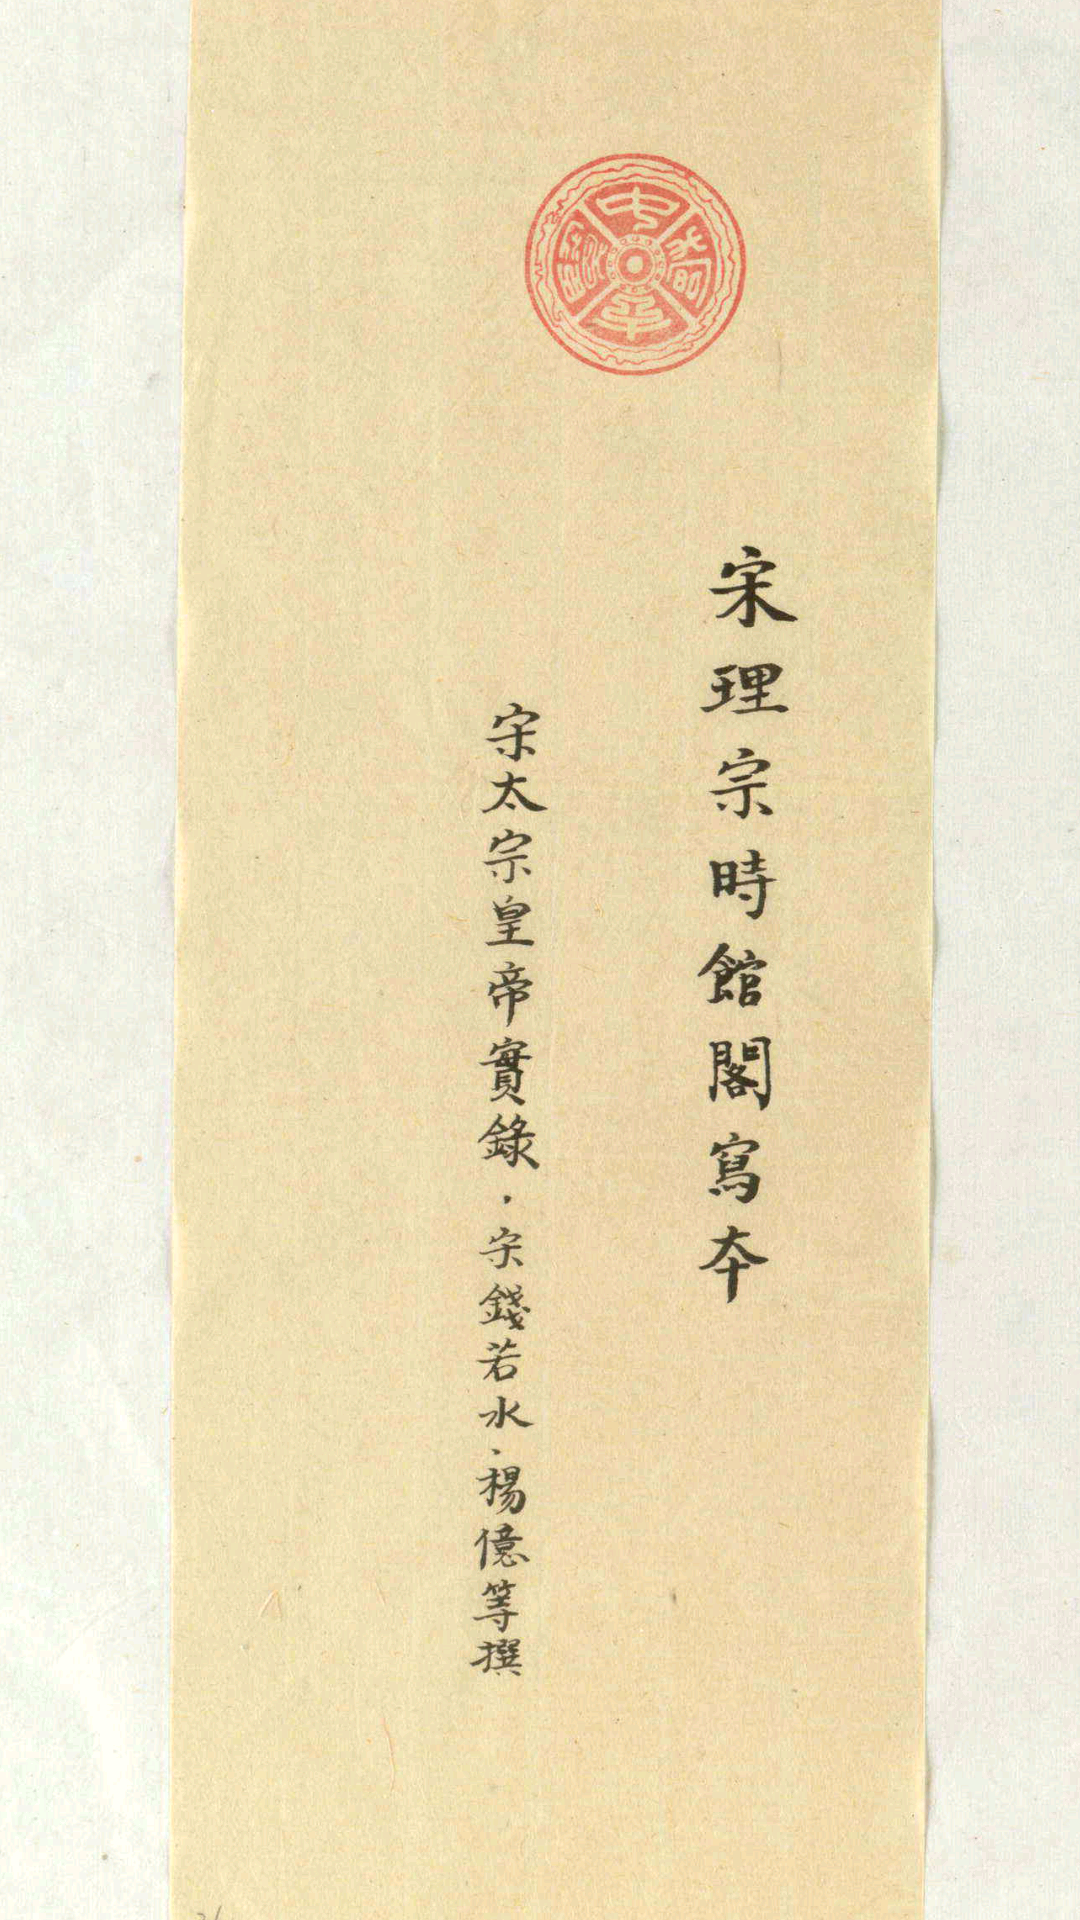 宋理宗時館閣寫本
宋太宗皇帝實錄，宋錢若水．楊億等撰